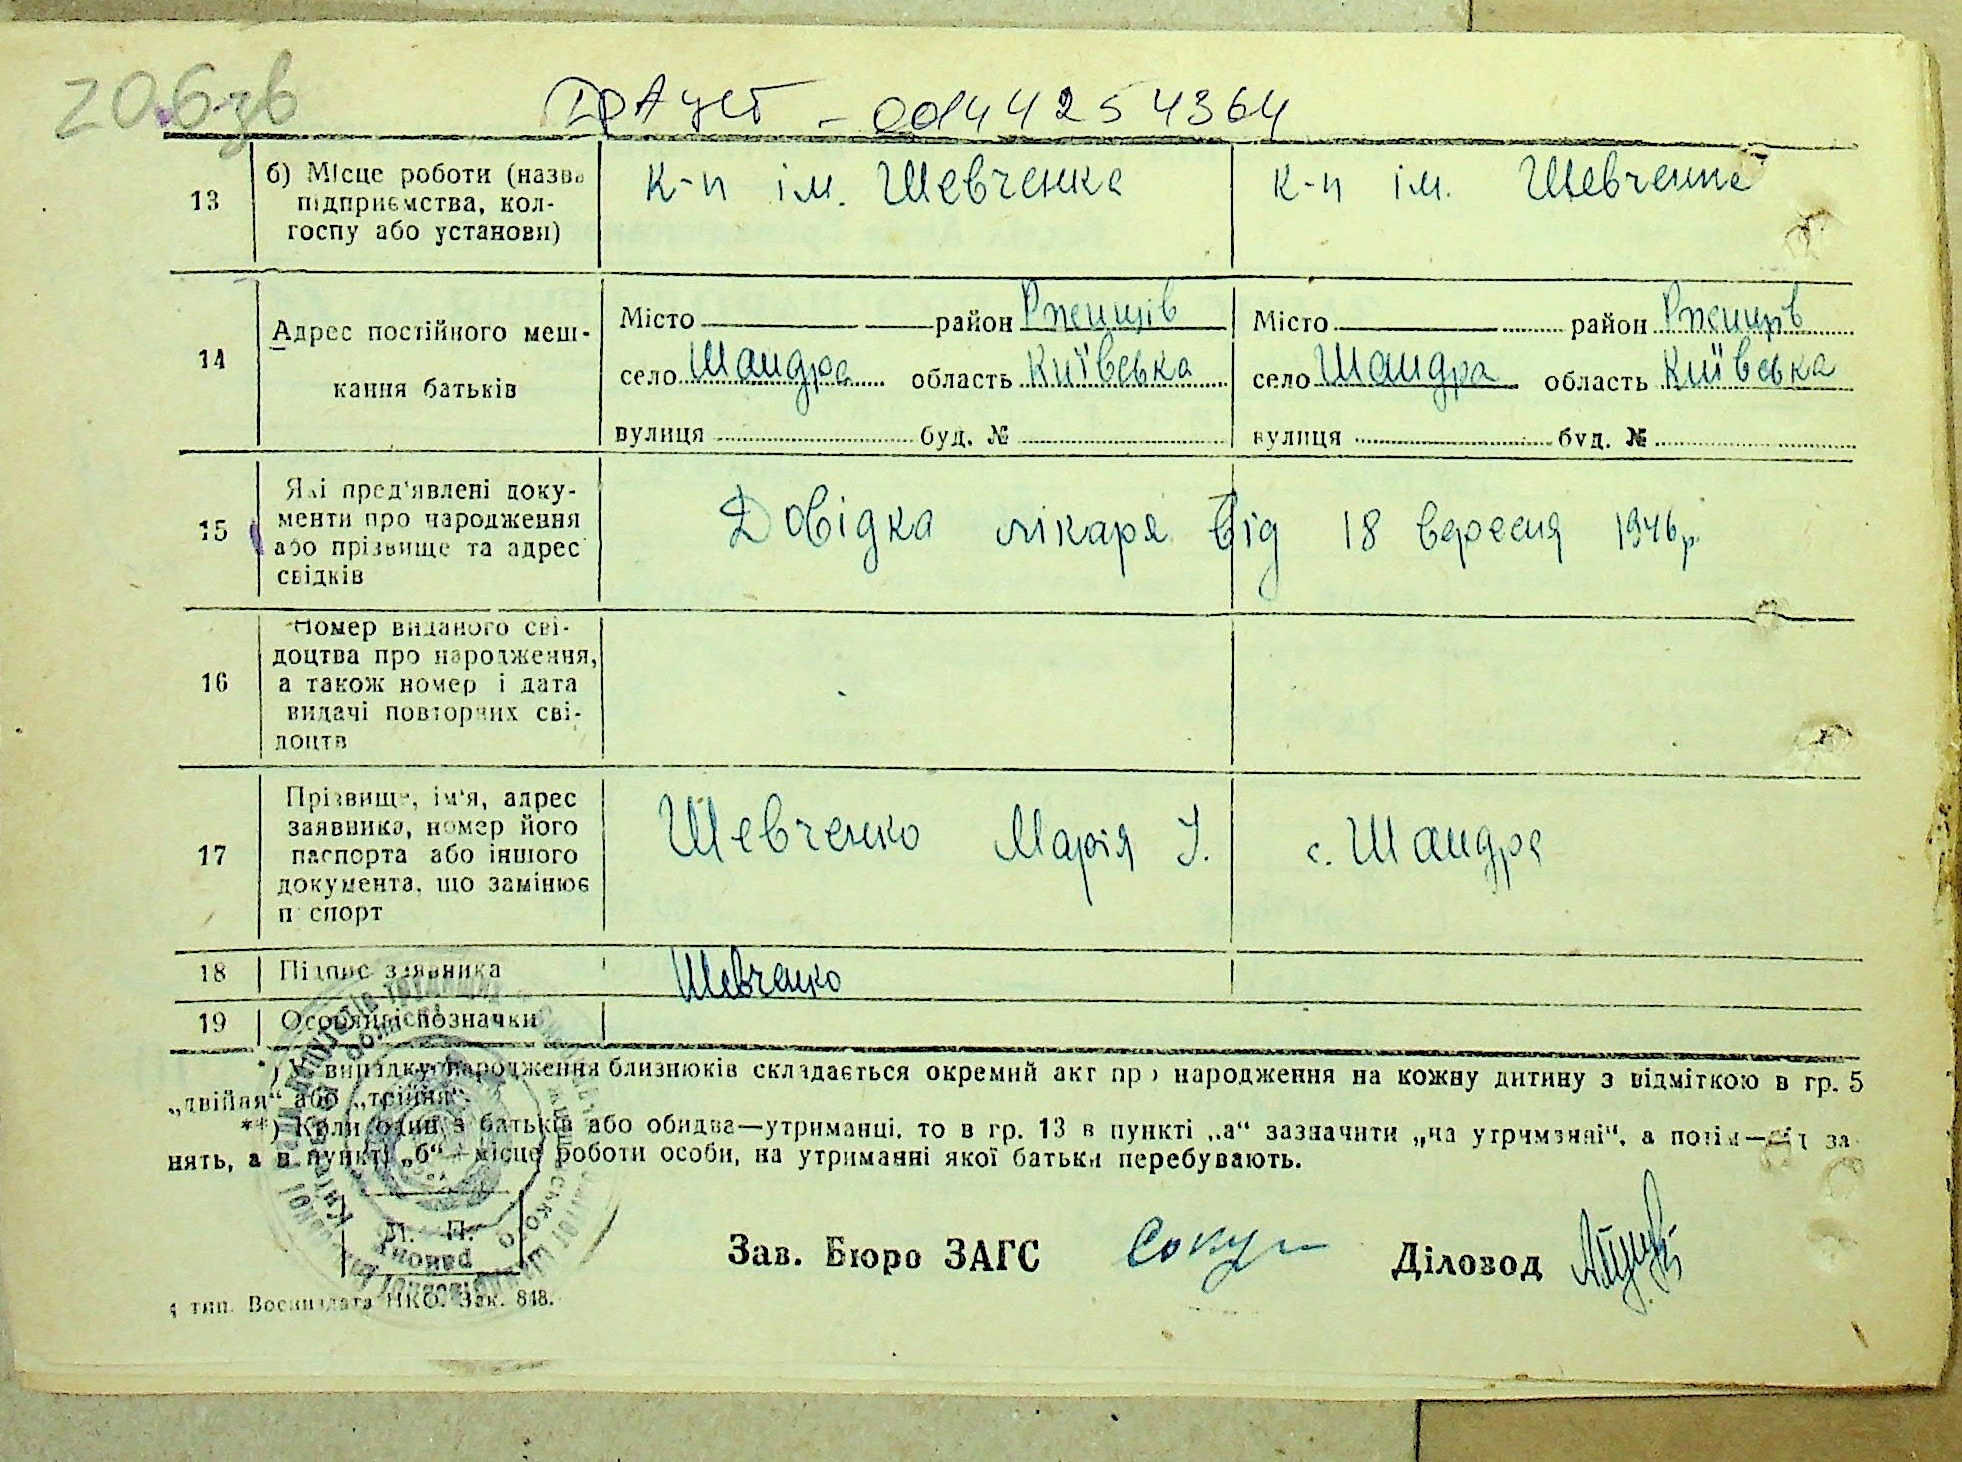 206зв
ДРАЦСТ - 00144254364
13 б) Місце роботи (назва підприємства, колгоспу або установи) к-п ім. Шевченка к-п ім. Шевченка
14 Адрес постійного мешкання батьків
Місто район Ржищів Місто район Ржищів
село Шандра область Київська село Шандра область Київська
вулиця буд. № вулиця буд. №
15 Які пред'явлені документи про народження або прізвище та адрес свідків Довідка лікаря від 18 вересня 1946 р.
16 Номер виданого свідоцтва про народження, а також номер і дата видачі повторних свідоцтв
17 Прізвище, ім'я, адрес заявника, номер його паспорта або іншого документа, що замінює паспорт Шевченко Марія І. с. Шандра
18 Підпис заявника Шевченко
19 Особливі позначки
*) У випадку народження близнюків складається окремий акт про народження на кожну дитину з відміткою в гр. 5
„двійня“ або „трійня“.
**) Коли один з батьків або обидва—утриманці, то в гр. 13 в пункті „а“ зазначити „на утриманні“, а потім—рід за-
нять, а в пункті „б“ — місце роботи особи, на утриманні якої батьки перебувають.
М. П.
Зав. Бюро ЗАГС Діловод
4 тип. Воениздата НКО. Зак. 848.